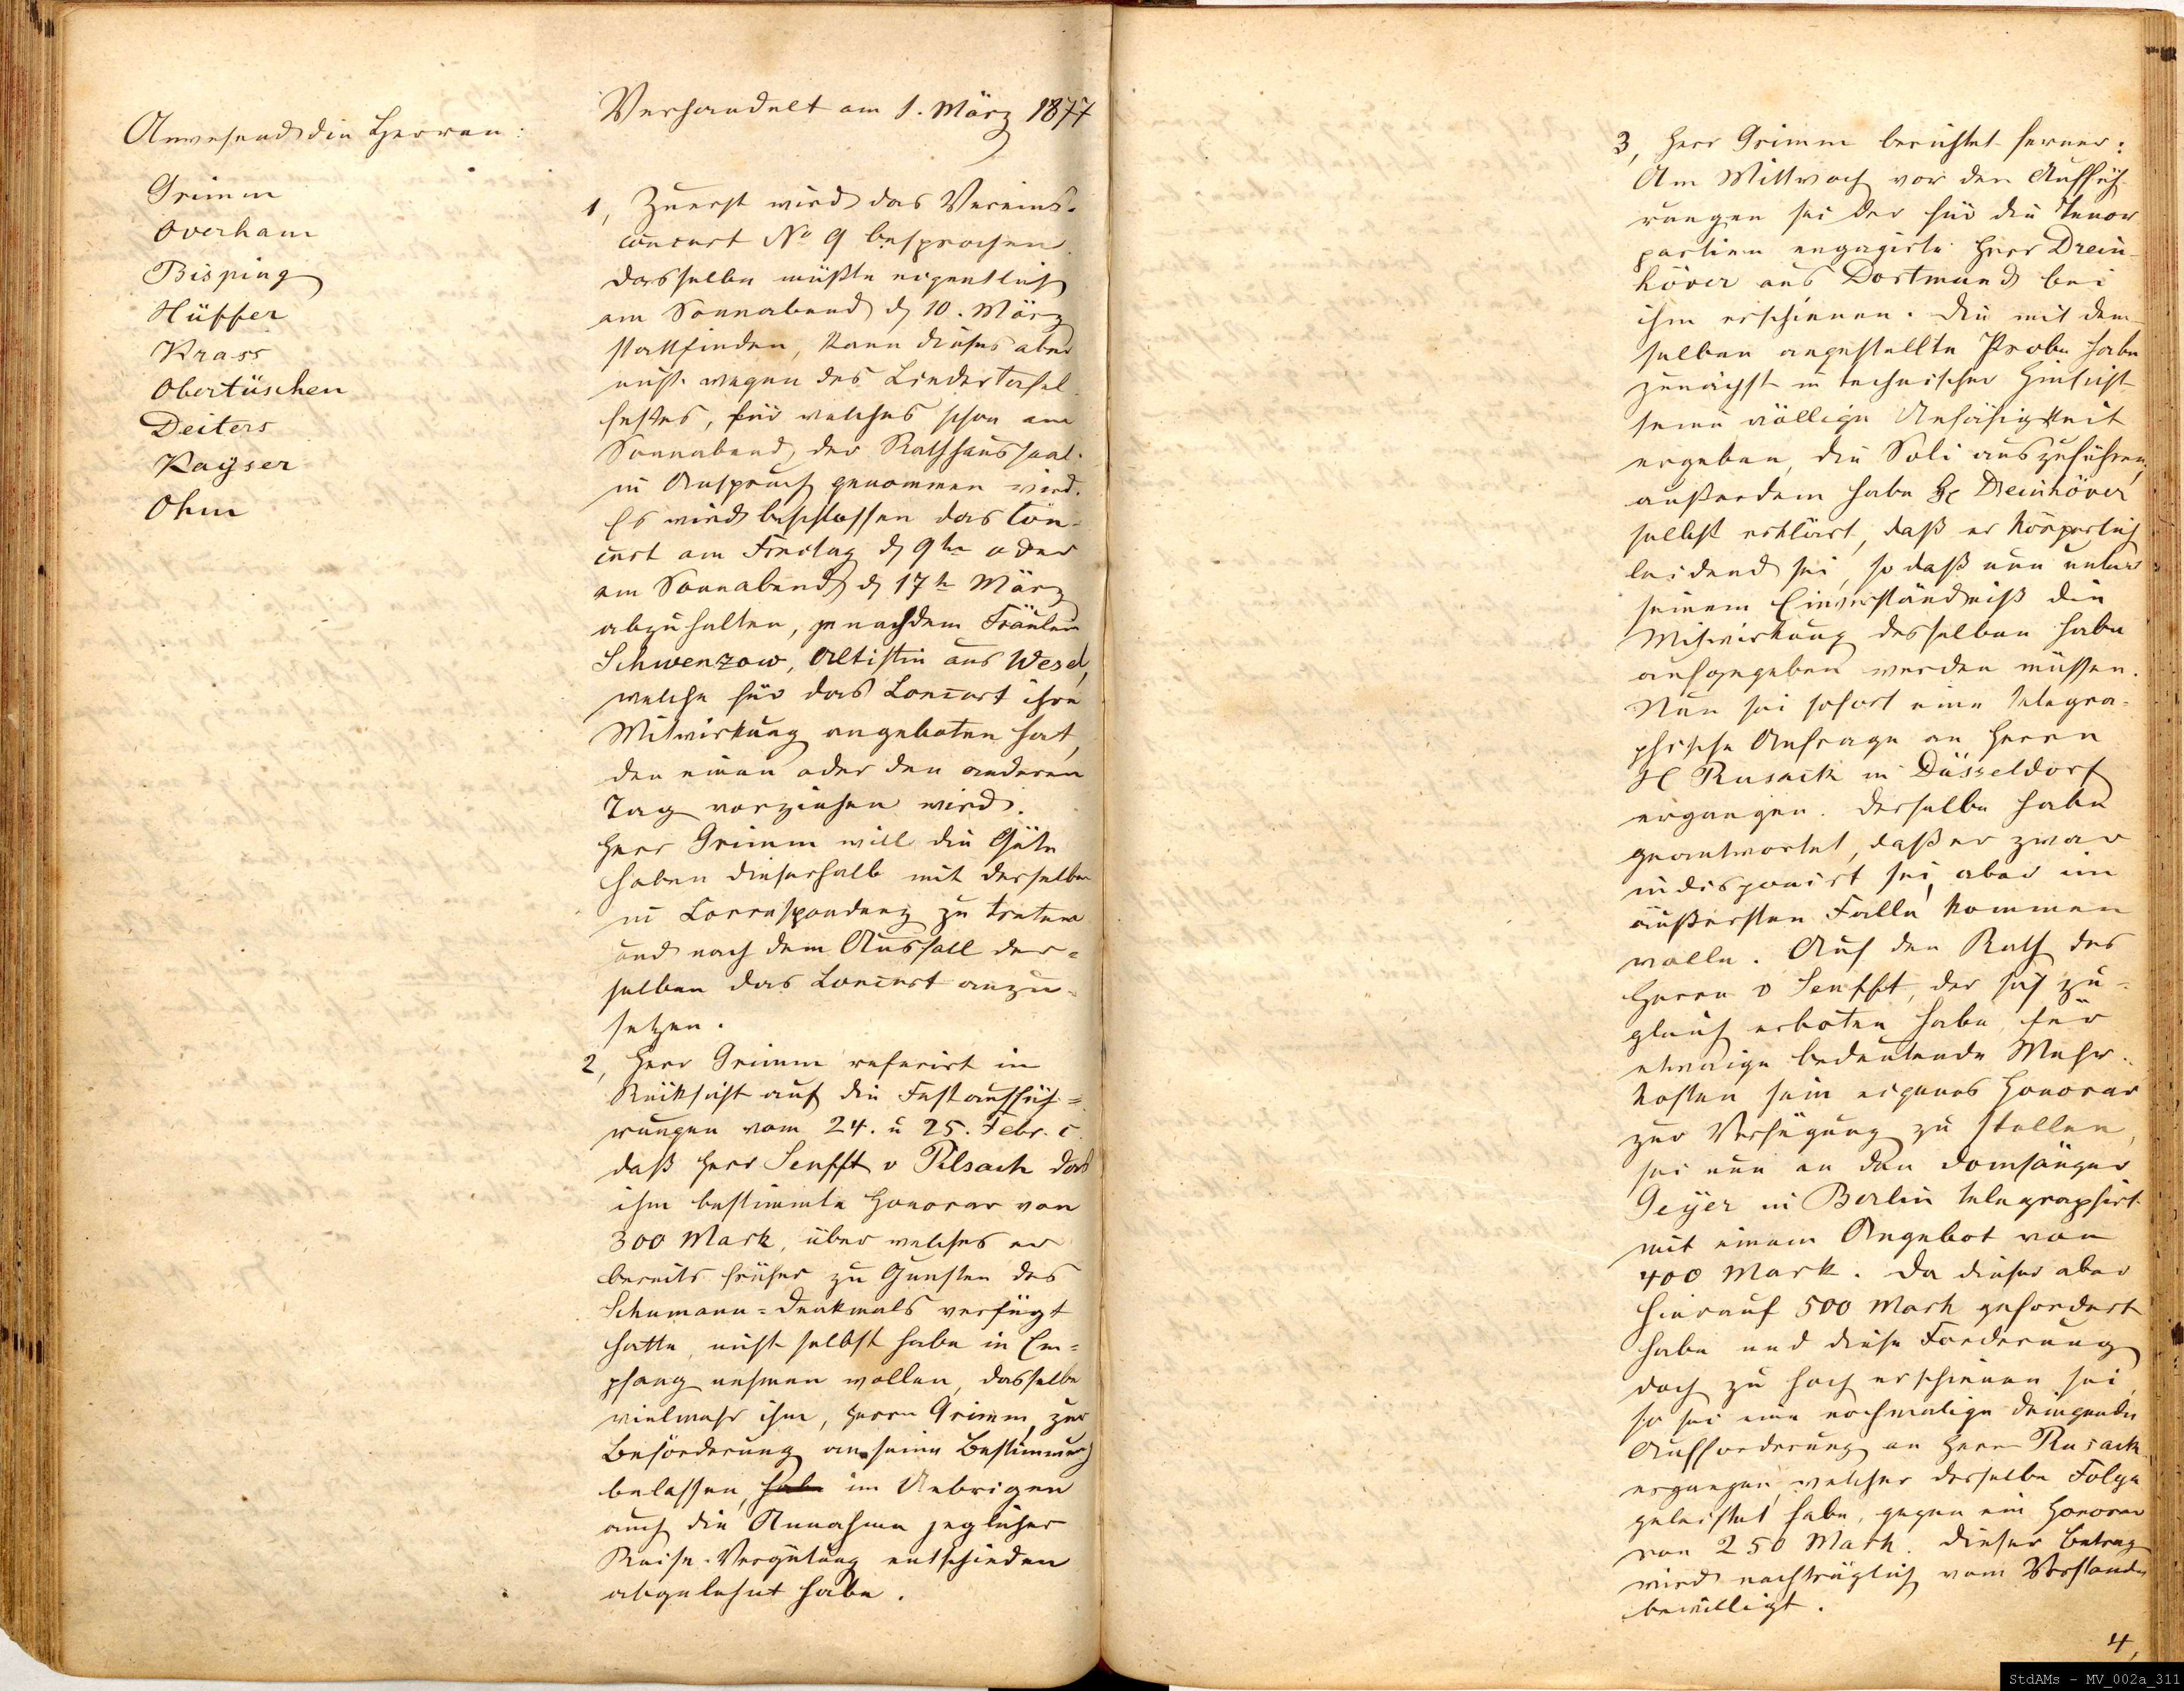 Anwesend die Herren:
Grimm
Overham
Bisping
Hüffer
Krass
Obertüschen
Deiters
Kayser
Ohm
Verhandelt am 1. März 1877
1, Zuerst wird das Vereins-
concert No 9 besprochen.
Dasselbe müßte eigentlich
am Sonnabend d 10. März
stattfinden, kann dieses aber
nicht wegen des Liedertafel-
festes, für welches schon am
Sonnabend der Rathhaussaal
in Anspruch genommen wird.
Es wird beschlossen das Con-
cert am Freitag d 9ten oder
am Sonnabend d 17ten März
abzuhalten, je nachdem Fräulein
Schwenzow, Altistin aus Wesel,
welche für das Concert ihre
Mitwirkung angeboten hat,
den einen oder den anderen
Tag vorziehen wird.
Herr Grimm will die Güte
haben dieserhalb mit derselben
in Correspondenz zu treten
und nach dem Ausfall der=
selben das Concert anzu-
setzen.
2, Herr Grimm referirt in
Rücksicht auf die Festauffüh=
rungen vom 24. u 25. Febr. c.
daß Herr Senfft v Pilsach das
ihm bestimmte Honorar von
300 Mark, über welches er
bereits früher zu Gunsten des
Schumann=Denkmals verfügt
hatte, nicht selbst habe in Em=
pfang nehmen wollen, dasselbe
vielmehr ihm, Herrn Grimm, zur
Beförderung an seine Bestimmung
belassen, habe im Uebrigen
auch die Annahme jeglicher
Reise-Vergütung entschieden
abgelehnt habe.
3, Herr Grimm berichtet ferner:
Am Mittwoch vor den Auffüh-
rungen sei der für die Tenor
partien engagirte Herr Drein-
höver aus Dortmund bei
ihm erschienen. Die mit dem-
selben angestellte Probe habe
zunächst in technischer Hinsicht
seine völlige Unfähigkeit
ergeben, die Soli auszuführen,
außerdem habe Hr Dreinhöver
selbst erklärt, daß er körperlich
leidend sei, so daß nun unter
seinem Einverständniß die
Mitwirkung desselben habe
aufgegeben werden müssen.
Nun sei sofort eine telegra-
phische Anfrage an Herrn
H Rusack in Düsseldorf
ergangen. Derselbe habe
geantwortet, daß er zwar
indisponirt sei, aber im
äußersten Falle kommen
wolle. Auf den Rath des
Herrn v Senfft, der sich zu-
gleich erboten habe, für
etwaige bedeutende Mehr-
kosten sein eigenes Honorar
zur Verfügung zu stellen,
sei nun an den Domsänger
Geyer in Berlin telegraphirt
mit einem Angebot von
400 Mark. Da dieser aber
hierauf 500 Mark gefordert
habe und diese Forderung
doch zu hoch erschienen sei,
so sei eine nochmalige dringende
Aufforderung an Herrn Rusack
ergangen, welcher derselbe Folge
geleistet habe, gegen ein Honorar
von 250 Mark. Dieser Betrag
wird nachträglich vom Vorstande
bewilligt.
4,
StdAMs - MV_002a_311